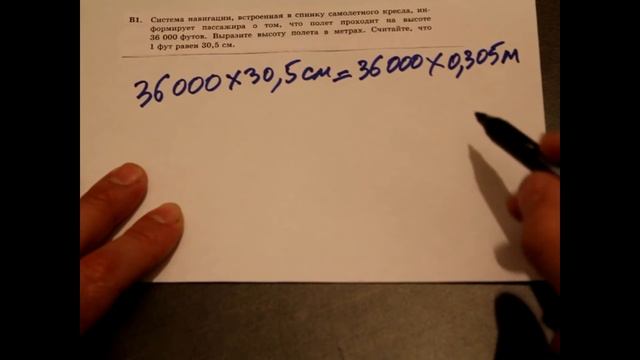 В1. Система навигации, встроенная в спинку самолетного кресла, ин-
формирует пассажира о том, что полет проходит на высоте
36 000 футов. Выразите высоту полета в метрах. Считайте, что
1 фут равен 30,5 см.
36 000 × 30,5 см = 36 000 × 0,305 м